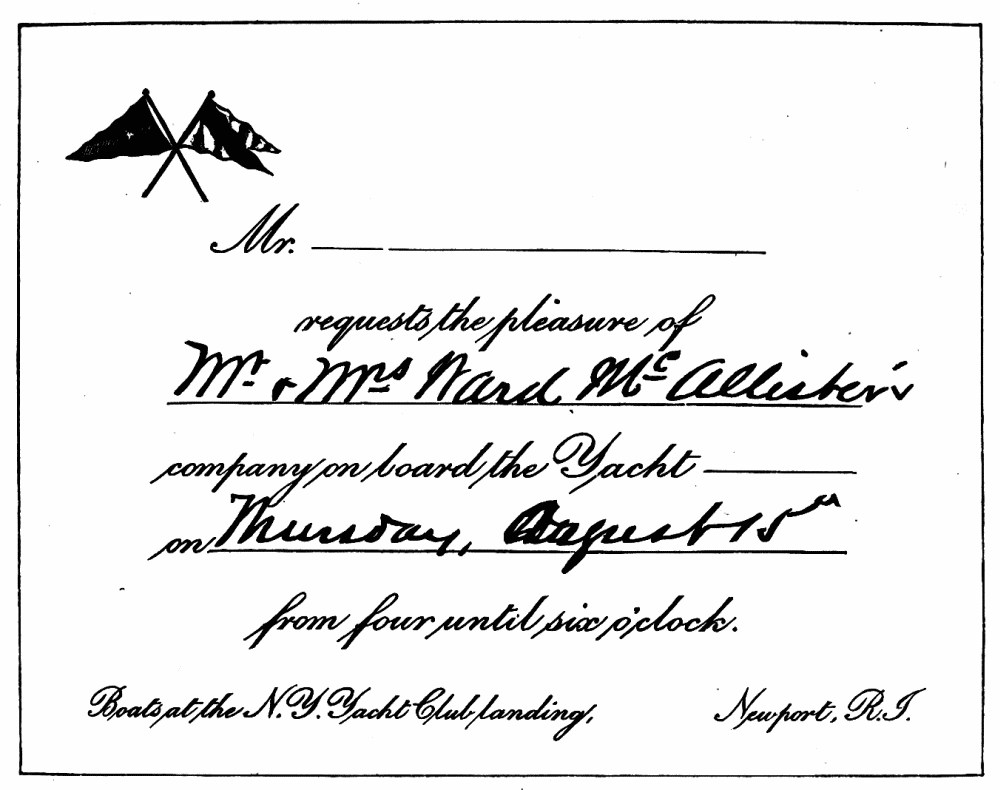 Mr.
requests the pleasure of
Mr. & Mrs Ward McAllister's
company on board the Yacht
on Thursday, August 15th
from four until six o'clock.
Boats at the N.Y. Yacht Club landing, Newport, R.I.